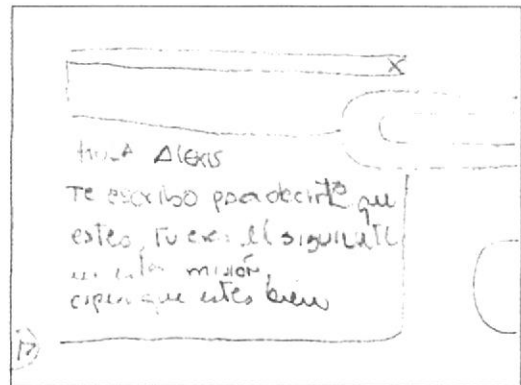 X
HOLA ALEXIS
Te escribo para decirte que
estes, tu eres el siguiente
en esta misión,
espero que estes bien